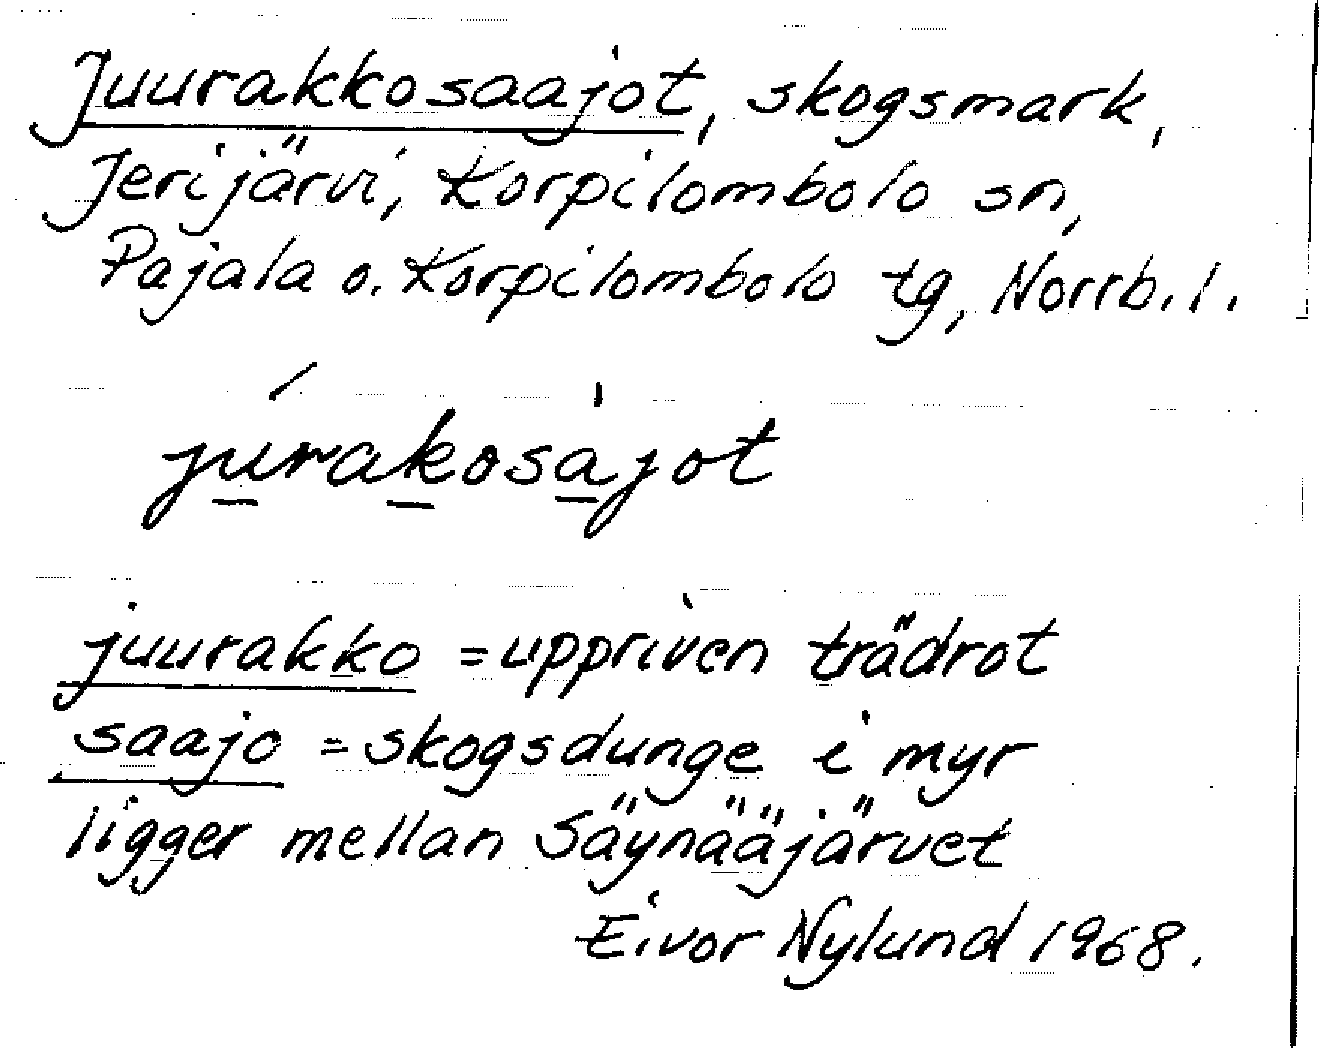 Juurakkosaajot, skogsmark,
Jerijärvi, Korpilombolo sn,
Pajala o. Korpilombolo tg, Norrb. l.
jurakosajot
juurakko = uppriven trädrot
saajo = skogsdunge i myr
ligger mellan Säynääjärvet
Eivor Nylund 1968.